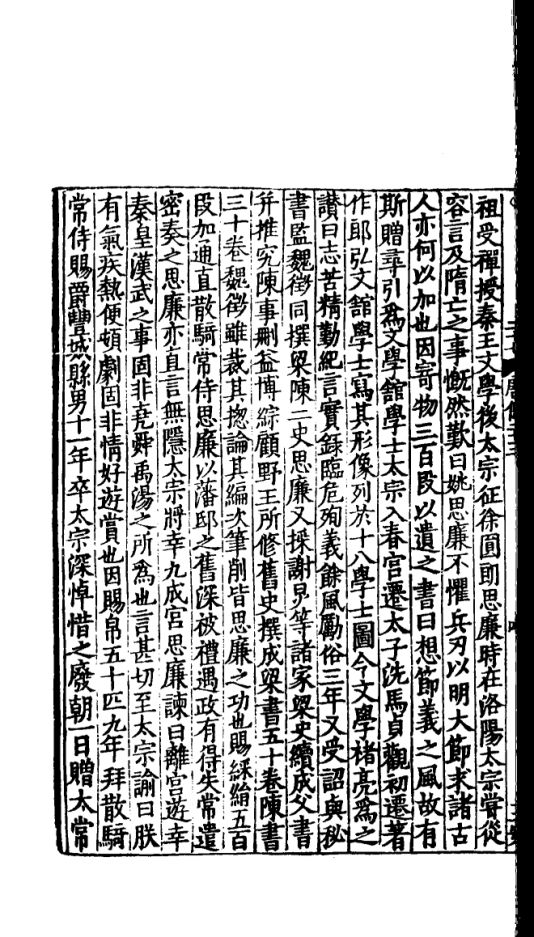 祖受禪授秦王文學後太宗征徐圓朗思廉時在洛陽太宗嘗從
容言及隋亡之事慨然歎曰姚思廉不懼兵刃以明大節求諸古
人亦何以加也因寄物三百段以遺之書曰想節義之風故有
斯贈尋引爲文學館學士太宗入春宮遷太子洗馬貞觀初遷著
作郎弘文館學士寫其形像列於十八學士圖令文學褚亮爲之
讃曰志苦精勤紀言實錄臨危殉義餘風勵俗三年又受詔與秘
書監魏徵同撰梁陳二史思廉又採謝炅等諸家梁史續成父書
并推究陳事刪益博綜顧野王所修舊史撰成梁書五十卷陳書
三十卷魏徵雖裁其揔論其編次筆削皆思廉之功也賜綵絹五百
段加通直散騎常侍思廉以藩邸之舊深被禮遇政有得失常遣
密奏之思廉亦直言無隱太宗將幸九成宮思廉諫曰離宮遊幸
秦皇漢武之事固非堯舜禹湯之所爲也言甚切至太宗諭曰朕
有氣疾熱便頓劇固非情好遊賞也因賜帛五十匹九年拜散騎
常侍賜爵豐城縣男十一年卒太宗深悼惜之廢朝一日贈太常